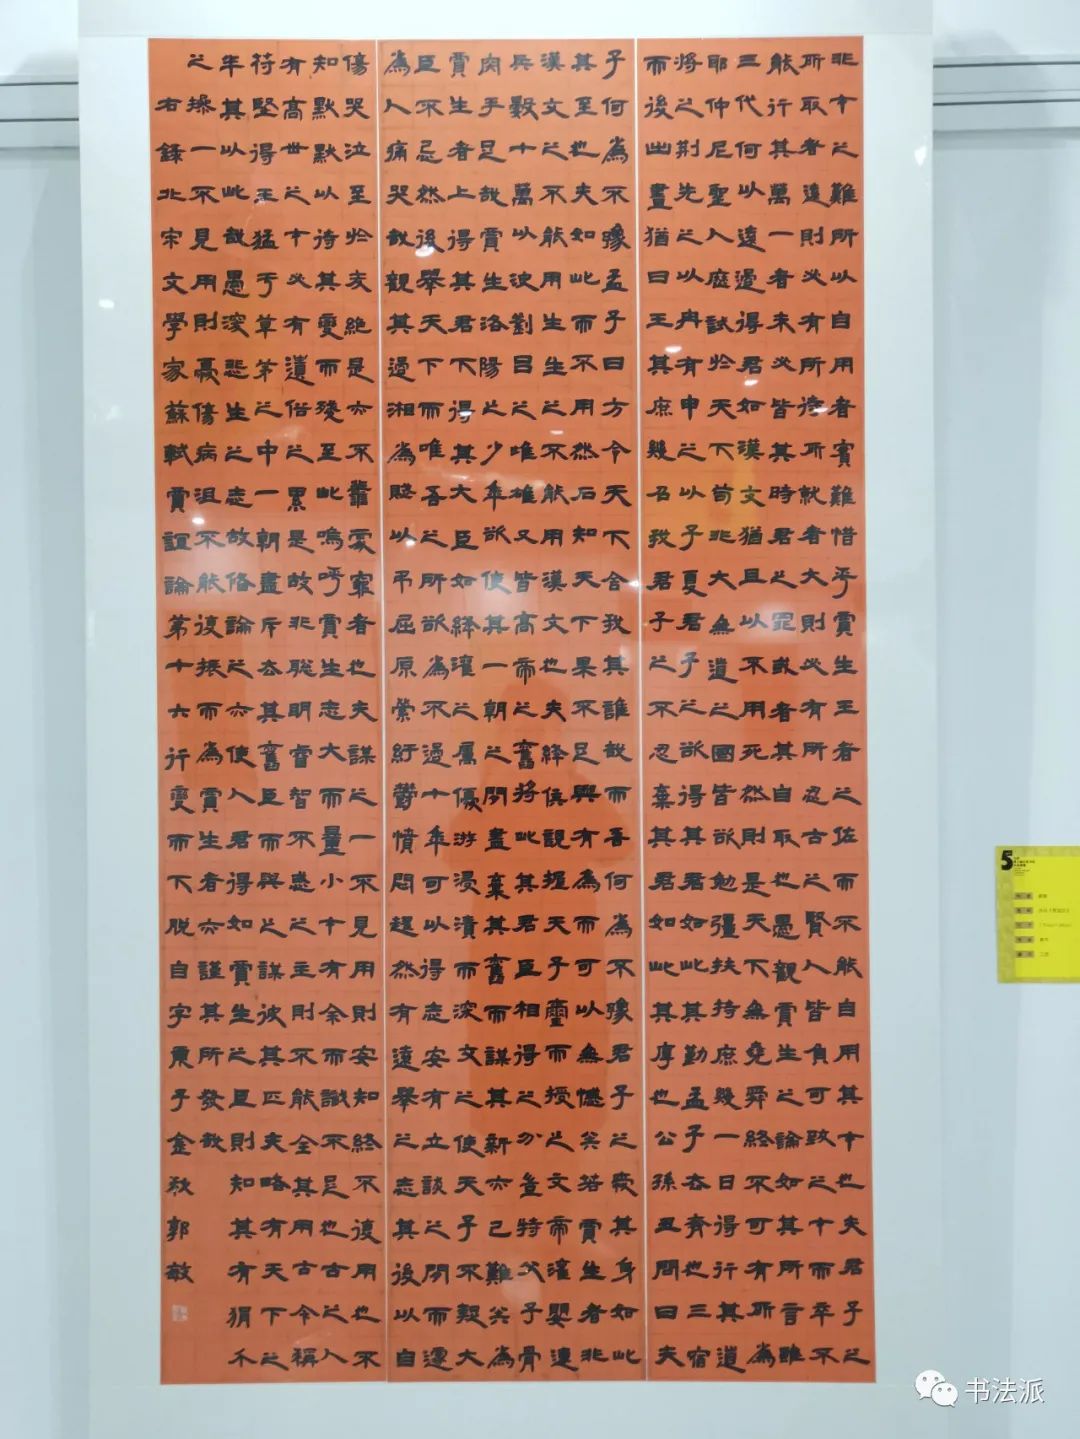 非才之難所以自用者實難惜乎賈生王者之佐而不能自用其才也夫君子之
所取者遠則必有所待所就者大則必有所忍古之賢人皆負可致之才而卒不
能行其萬一者未必皆其時君之罪或者其自取也愚觀賈生之論如其所言雖
三代何以遠過得君如漢文猶且以不用死然則是天下無堯舜終不可有所為
耶仲尼聖人歷試於天下苟非大無道之國皆欲勉彊扶持庶幾一日得行其道
將之荊先之以冉有申之以子夏君子之欲得其君如此其勤孟子去齊也三宿
而後出晝猶曰王其庶幾召我君子之不忍棄其君如此其厚也公孫丑問曰夫
子何為不豫孟子曰方今天下舍我其誰哉而吾何為不豫君子之愛其身如此
其至也夫如此而不用然石知天下果不足與有為而可以無憾矣若賈生者非
漢文之不能用生生之不能用漢文也夫絳侯親握天子璽而授之文帝灌嬰連
兵數十萬以決劉呂之雌雄又皆高帝之舊將此其君臣相得之分豈特父子骨
肉手足哉賈生洛陽之少年欲使其一朝之間盡棄其舊而謀其新亦已難矣為
賈生者上得其君下得其大臣如絳灌之屬優游浸漬而深交之使天子不疑大
臣不忌然後舉天下而唯吾之所欲為不過十年可以得志安有立談之間而遽
為人痛哭哉觀其過湘為賦以弔屈原縈紆鬱憤悶趯然有遠舉之志其後以自
傷哭泣至於夭絕是亦不善處窮者也夫謀之一不見用則安知終不復用也不
知默默以待其變而殘至此嗚呼賈生志大而量小才有余而識不足也古之人
有高世之才必有遺俗之累是故非聰明睿智不惑之主則不能全其用古今稱
符堅得王猛于草茅之中一朝盡斥去其舊臣而與之謀彼其匹夫略有天下之
半其以此哉愚深悲生之志故備論之亦使人君得如賈生之臣則知其有狷介
之操一不見用則憂傷病沮不能復振而為賈生者亦謹其所發哉
右錄北宋文學家蘇軾賈誼論第十六行變而下脫自字庚子金秋郭敏
5
书法派